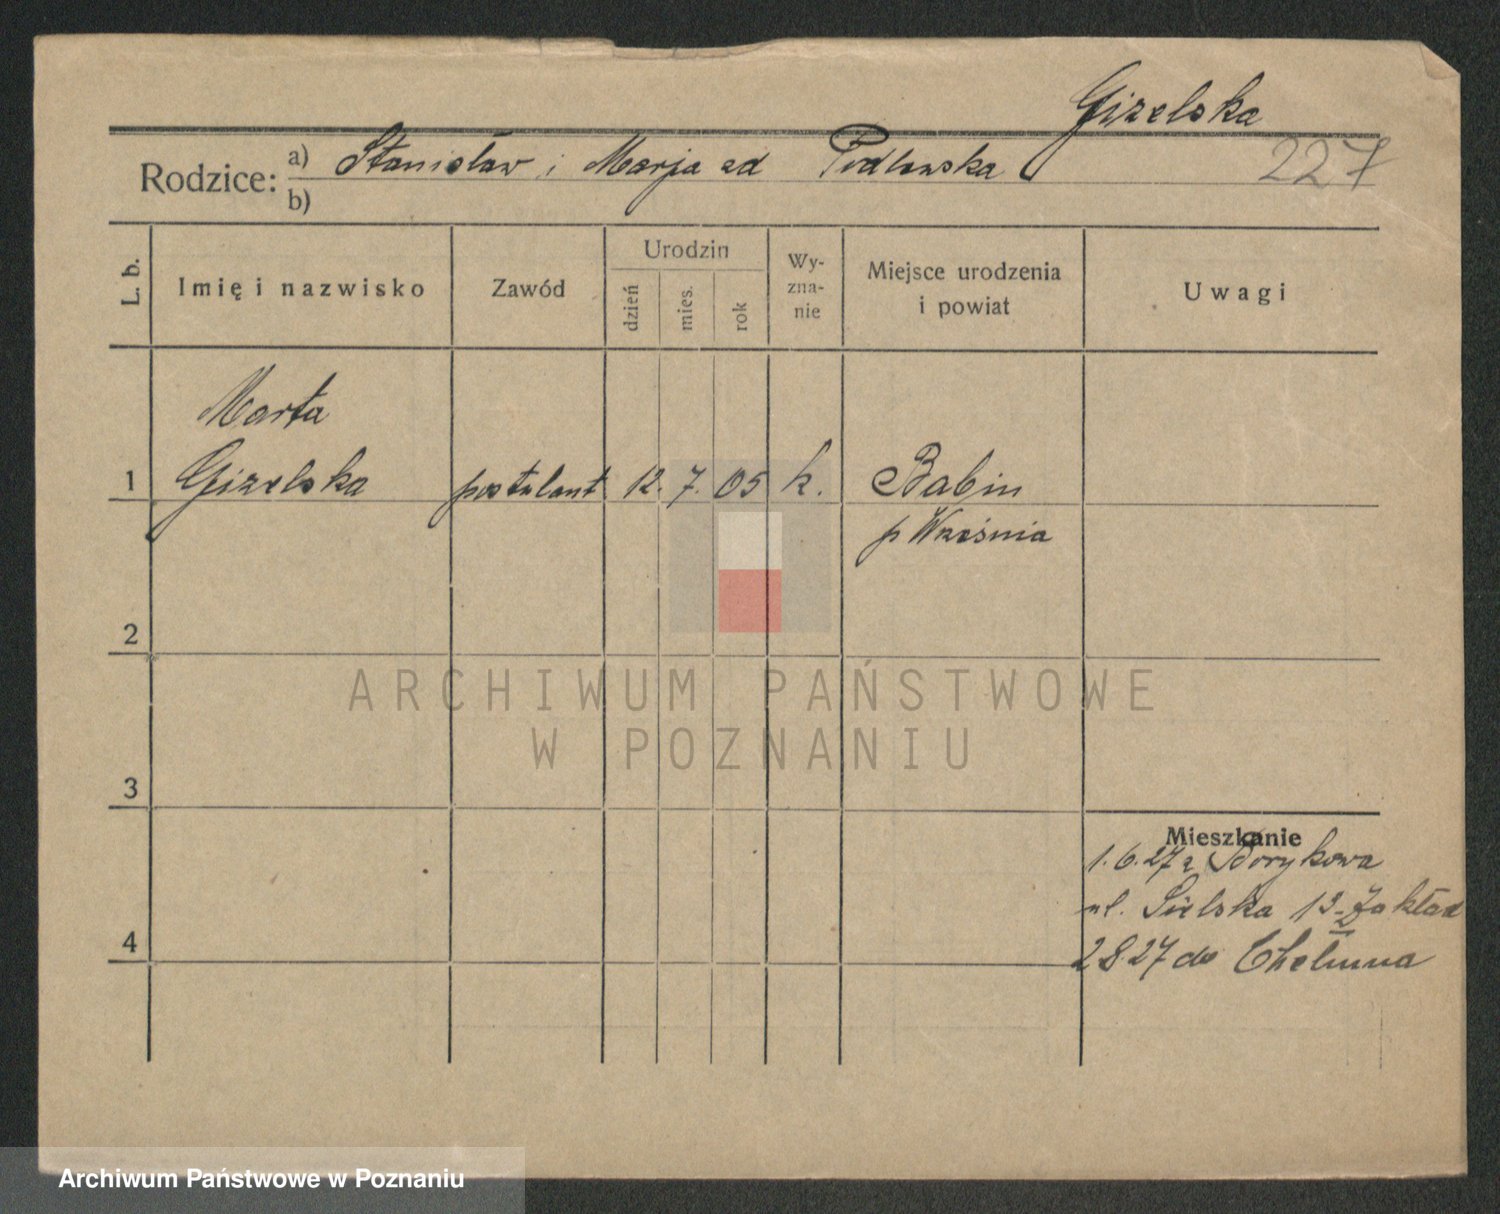 Gizelska
Rodzice: a) Stanisław i Marja zd Podlewska
227
b)
L. b. Imię i nazwisko Zawód Urodzin dzień mies. rok Wy-zna-nie Miejsce urodzenia i powiat Uwagi
Marta
1 Gizelska postulant 12. 7. 05 k. Babin
p Września
2
ARCHIWUM PAŃSTWOWE
W POZNANIU
3
Mieszkanie
1.6.27 z Borykowa
ul. Sielska 13 Zakład
4 2 8 27 do Chełmna
Archiwum Państwowe w Poznaniu